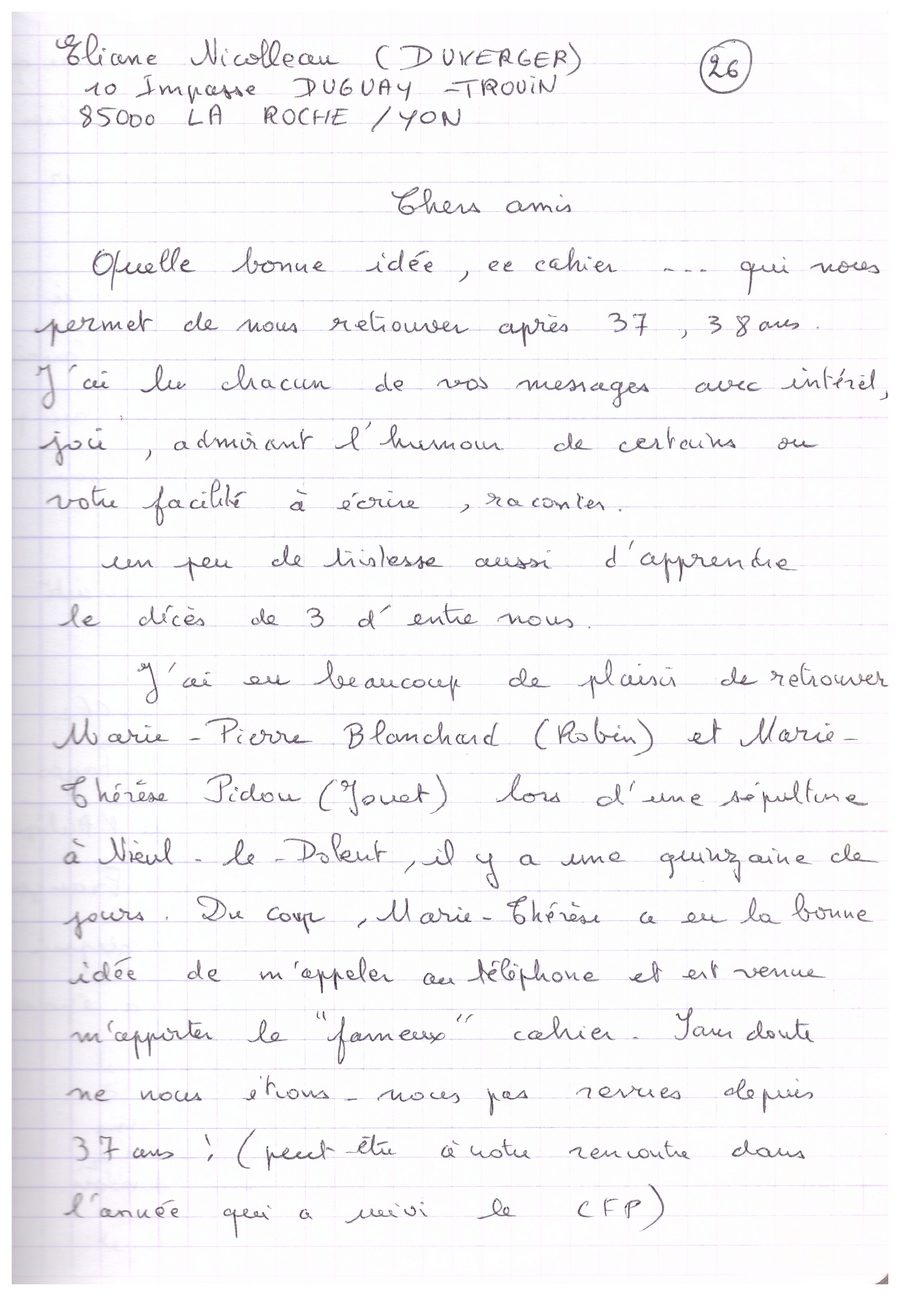 Eliane Nicolleau (DUVERGER)
26
10 Impasse DUGUAY-TROUIN
85000 LA ROCHE / YON
Chers amis
Quelle bonne idée, ce cahier --- qui nous
permet de nous retrouver après 37, 38 ans.
J'ai lu chacun de vos messages avec intérêt,
joie, admirant l'humour de certains ou
votre facilité à écrire, raconter.
un peu de tristesse aussi d'apprendre
le décès de 3 d'entre nous.
J'ai eu beaucoup de plaisir de retrouver
Marie-Pierre Blanchard (Robin) et Marie-
Thérèse Pidou (Jouet) lors d'une sépulture
à Nieul-le-Dolent, il y a une quinzaine de
jours. Du coup, Marie-Thérèse a eu la bonne
idée de m'appeler au téléphone et est venue
m'apporter le "fameux" cahier. Sans doute
ne nous étions-nous pas revues depuis
37 ans ! (peut-être à notre rencontre dans
l'année qui a suivi le CFP)